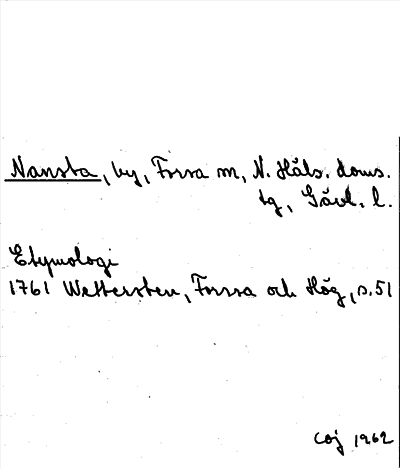 Nansta, by, Forsa sn, N. Häls. doms.
tg, Gävl. l.
Etymologi
1761 Wettersten, Forssa och Hög, s. 51
COJ 1962